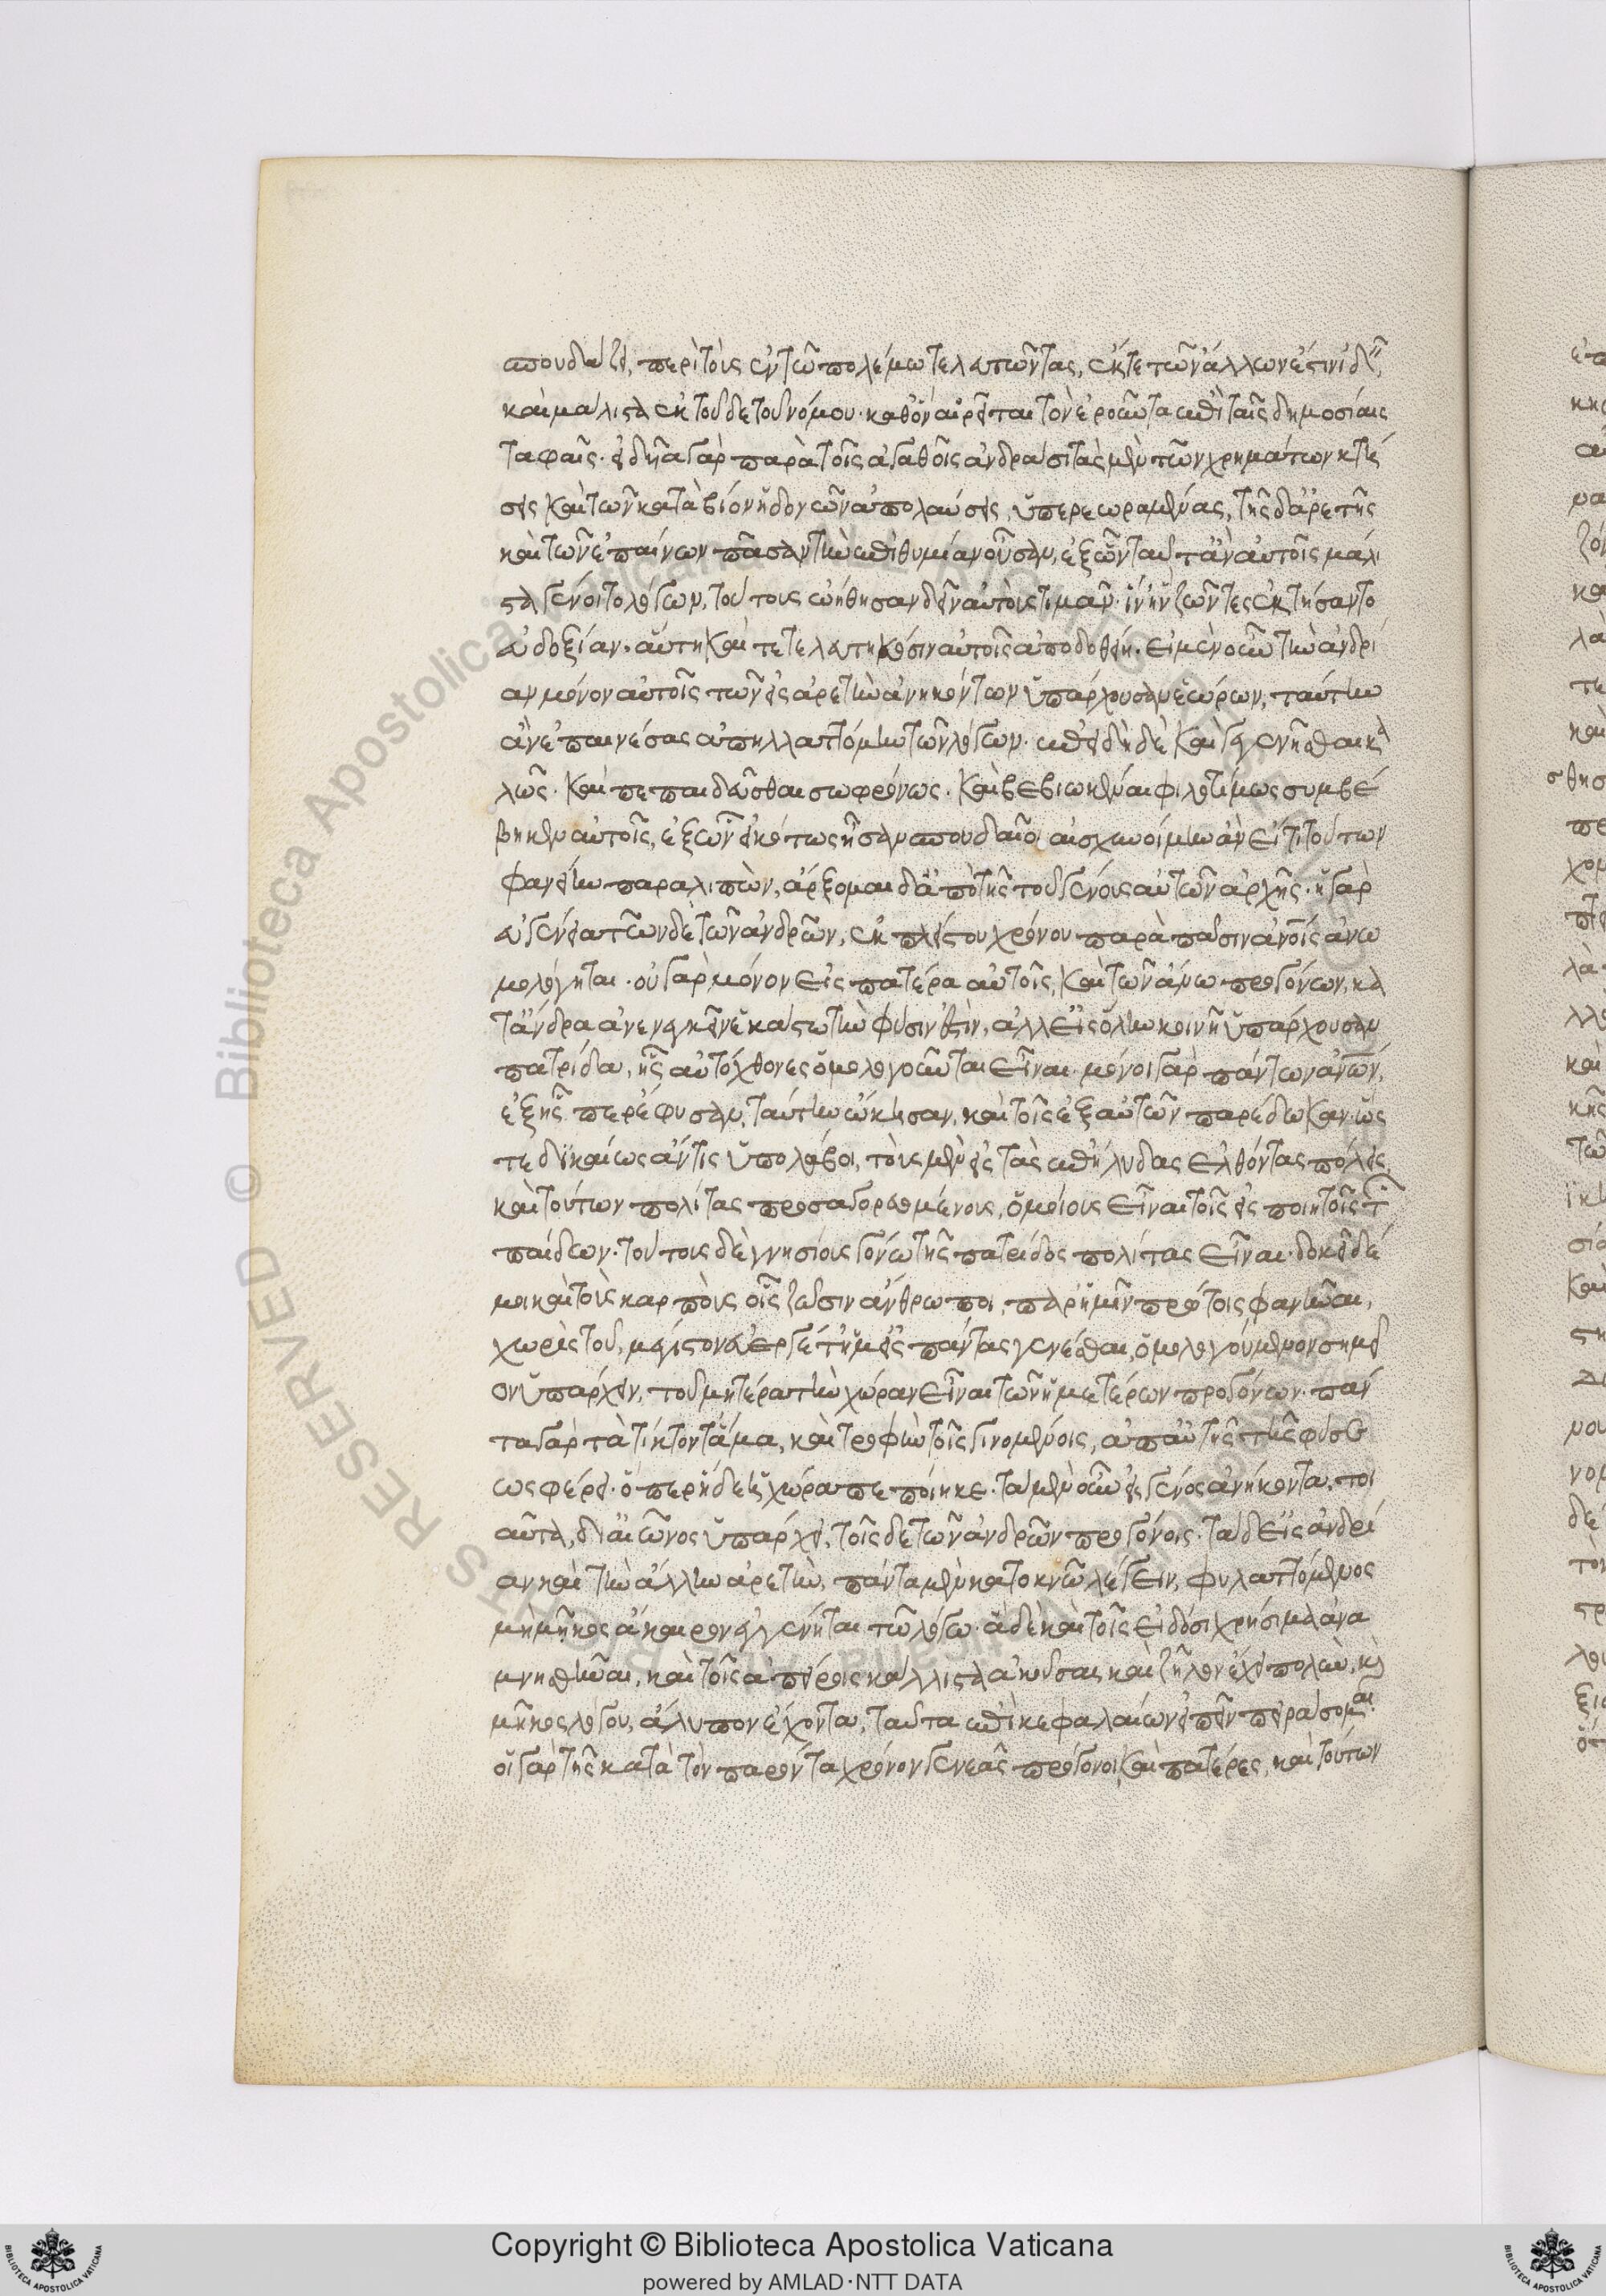 σπουδάζει, περὶ τοὺς ἐν τῶ πολέμω τελευτῶντας, ἔκ τε τῶν ἄλλων ἐστὶν ἰδεῖν,
καὶ μάλιστα ἐκ τοῦδε τοῦ νόμου· καθ' ὃν αἱρεῖται τὸν ἐροῦντα ἐπὶ ταῖς δημοσίαις
ταφαῖς. εἰδυῖα γὰρ παρὰ τοῖς ἀγαθοῖς ἀνδράσι τὰς μὲν τῶν χρημάτων κτή
σεις καὶ τῶν κατὰ βίον ἡδονῶν ἀπολαύσεις, ὑπερεωραμένας, τῆς δ' ἀρετῆς
καὶ τῶν ἐπαίνων πᾶσαν τὴν ἐπιθυμίαν οὖσαν, ἐξ ὧν ταῦτ' ἂν αὐτοῖς μάλι
στα γένοιτο λόγων, τούτοις ᾠήθησαν δεῖν αὐτοὺς τιμᾶν· ἵν' ἣν ζῶντες ἐκτήσαντο
εὐδοξίαν, αὕτη καὶ τετελευτηκόσιν αὐτοῖς ἀποδοθείη. εἰ μὲν οὖν τὴν ἀνδρεί
αν μόνον αὐτοῖς τῶν εἰς ἀρετὴν ἀνηκόντων ὑπάρχουσαν ἑώρων, ταύτην
ἂν ἐπαινέσας ἀπηλλαττόμην τῶν λόγων. ἐπειδὴ δὲ καὶ γεγενῆσθαι κα
λῶς. καὶ πεπαιδεῦσθαι σωφρόνως. καὶ βεβιωκέναι φιλοτίμως συμβέ
βηκεν αὐτοῖς, ἐξ ὧν εἰκότως ἦσαν σπουδαῖοι αἰσχυνοίμην ἂν εἴ τι τούτων
φανείην παραλιπὼν, ἄρξομαι δ' ἀπὸ τῆς τοῦ γένους αὐτῶν ἀρχῆς. ἡ γὰρ
εὐγένεια τῶνδε τῶν ἀνδρῶν, ἐκ πλείστου χρόνου παρὰ πᾶσιν ἀνοις ἀνω
μολόγηται. οὐ γὰρ μόνον εἰς πατέρα αὐτοῖς, καὶ τῶν ἄνω προγόνων, κα
τ' ἄνδρα ἀνενεγκεῖν ἑκάστω τὴν φύσιν ἐστὶν, ἀλλ' εἰς ὅλην κοινῆ ὑπάρχουσαν
πατρίδα, ἧς αὐτόχθονες ὁμολογοῦνται εἶναι. μόνοι γὰρ πάντων ἀνων,
ἐξ ἧς περ ἔφυσαν, ταύτην ᾤκησαν, καὶ τοῖς ἐξ αὐτῶν παρέδωκαν. ὥς
τε δικαίως ἄν τις ὑπολάβοι, τοὺς μὲν εἰς τὰς ἐπήλυδας ἐλθόντας πόλεις,
καὶ τούτων πολίτας προσαγορευομένους, ὁμοίους εἶναι τοῖς εἰς ποιητοῖς τῶν
παίδων. τούτους δὲ γνησίους γόνω τῆς πατρίδος πολίτας εἶναι. δοκεῖ δέ
μοι καὶ τοὺς καρποὺς οἷς ζῶσιν ἄνθρωποι, παρ' ἡμῖν πρώτοις φανῆναι,
χωρὶς τοῦ, μέγιστον εὐεργέτημ' εἰς πάντας γενέσθαι, ὁμολογούμενον σημεῖ
ον ὑπάρχειν, τοῦ μητέρα τὴν χώραν εἶναι τῶν ἡμετέρων προγόνων. πάν
τα γὰρ τὰ τίκτονθ' ἅμα, καὶ τροφὴν τοῖς γινομένοις, ἀπ' αὐτῆς τῆς φύσε
ως φέρει. ὅπερ ἥδε ἡ χώρα πεποίηκε. τὰ μὲν οὖν εἰς γένος ἀνήκοντα, τοι
αῦτα, δι' αἰῶνος ὑπάρχει, τοῖς δὲ τῶν ἀνδρῶν προγόνοις. τὰ δ' εἰς ἀνδρεί
αν καὶ τὴν ἄλλην ἀρετὴν, πάντα μὲν κατοκνῶ λέγειν, φυλαττόμενος
μὴ μῆκος ἄκαιρον ἐγγένηται τῶ λόγω. ἃ δὲ καὶ τοῖς εἰδόσι χρήσιμα ἀνα
μνησθῆναι, καὶ τοῖς ἀπείροις κάλλιστα ἀκοῦσαι, καὶ ζῆλον ἔχει πολὺν, καὶ
μῆκος λόγου, ἄλυπον ἔχοντα, ταῦτα ἐπὶ κεφαλαίων εἰπεῖν πειράσομαι.
οἱ γὰρ τῆς κατὰ τὸν παρόντα χρόνον γενεᾶς πρόγονοι καὶ πατέρες, καὶ τούτων
Copyright © Biblioteca Apostolica Vaticana
powered by AMLAD·NTT DATA